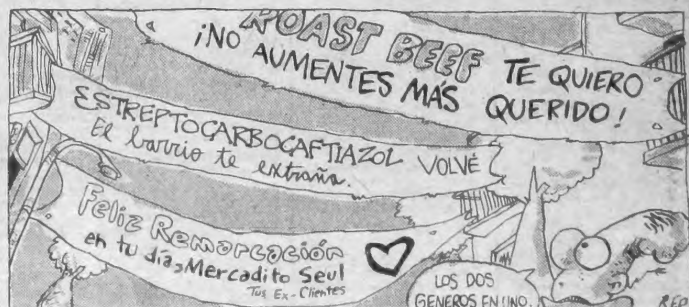 ROAST BEEF TE QUIERO
¡NO AUMENTES MÁS QUERIDO!
ESTREPTOCARBOCAFTIAZOL VOLVÉ
El barrio te extraña.
Feliz Remarcación
en tu día, Mercadito Seul
Tus Ex-Clientes
LOS DOS
GENEROS EN UNO.